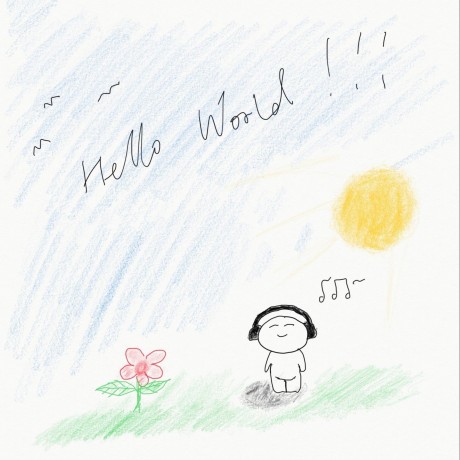 Hello World !!!